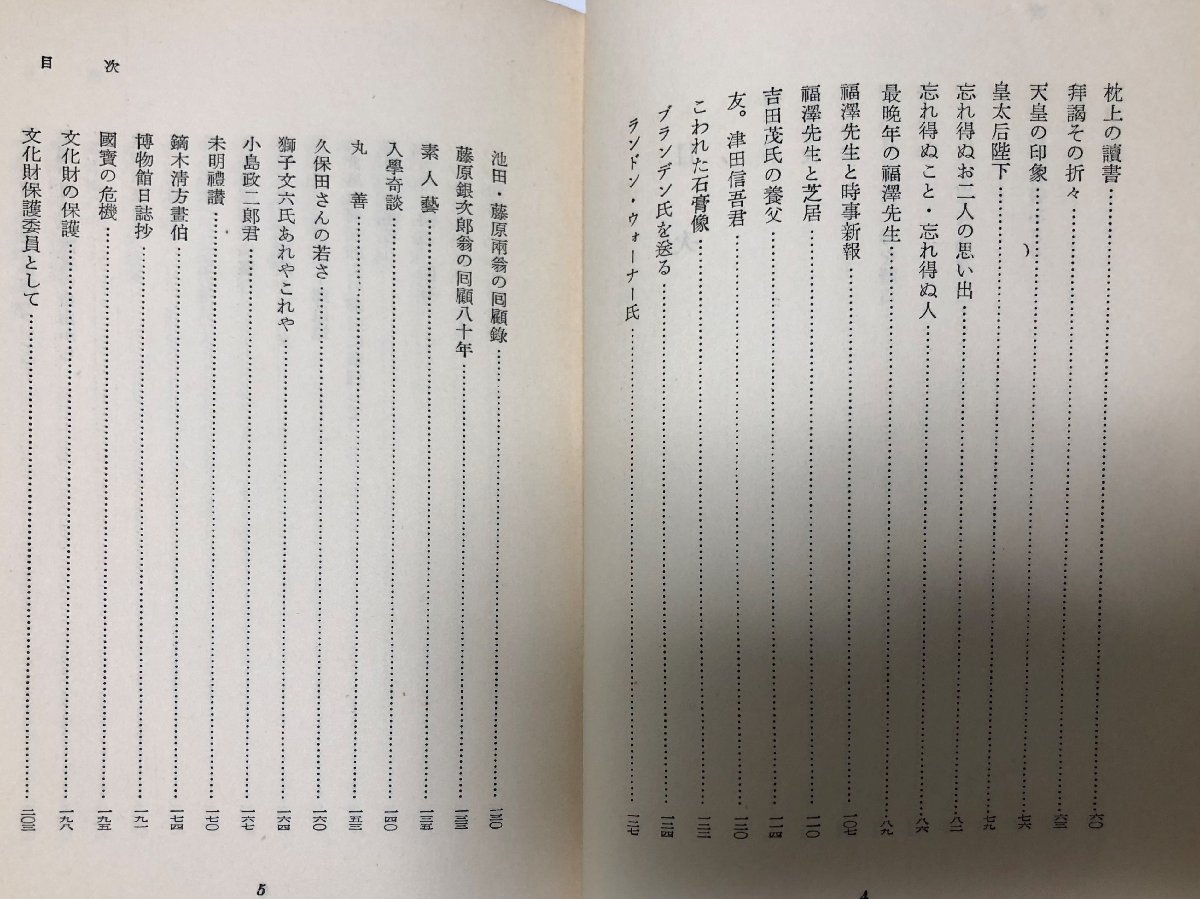 枕上の讀書……六〇
拜謁その折々……六三
天皇の印象……七六
皇太后陛下……七九
忘れ得ぬお二人の思い出……八二
忘れ得ぬこと・忘れ得ぬ人……八六
最晩年の福澤先生……八九
福澤先生と時事新報……一〇七
福澤先生と芝居……一一〇
吉田茂氏の養父……一一四
友。津田信吾君……一二〇
こわれた石膏像……一二二
ブランデン氏を送る……一二四
ランドン・ウォーナー氏……一二七
4
目次
池田・藤原兩翁の囘顧錄……一三〇
藤原銀次郎翁の囘顧八十年……一三三
素人藝……一三五
入學奇談……一四〇
丸善……一五三
久保田さんの若さ……一六〇
獅子文六氏あれやこれや……一六四
小島政二郎君……一六七
未明禮讃……一七〇
鏑木淸方畫伯……一七四
博物館日誌抄……一九一
國寶の危機……一九五
文化財の保護……一九八
文化財保護委員として……二〇三
5